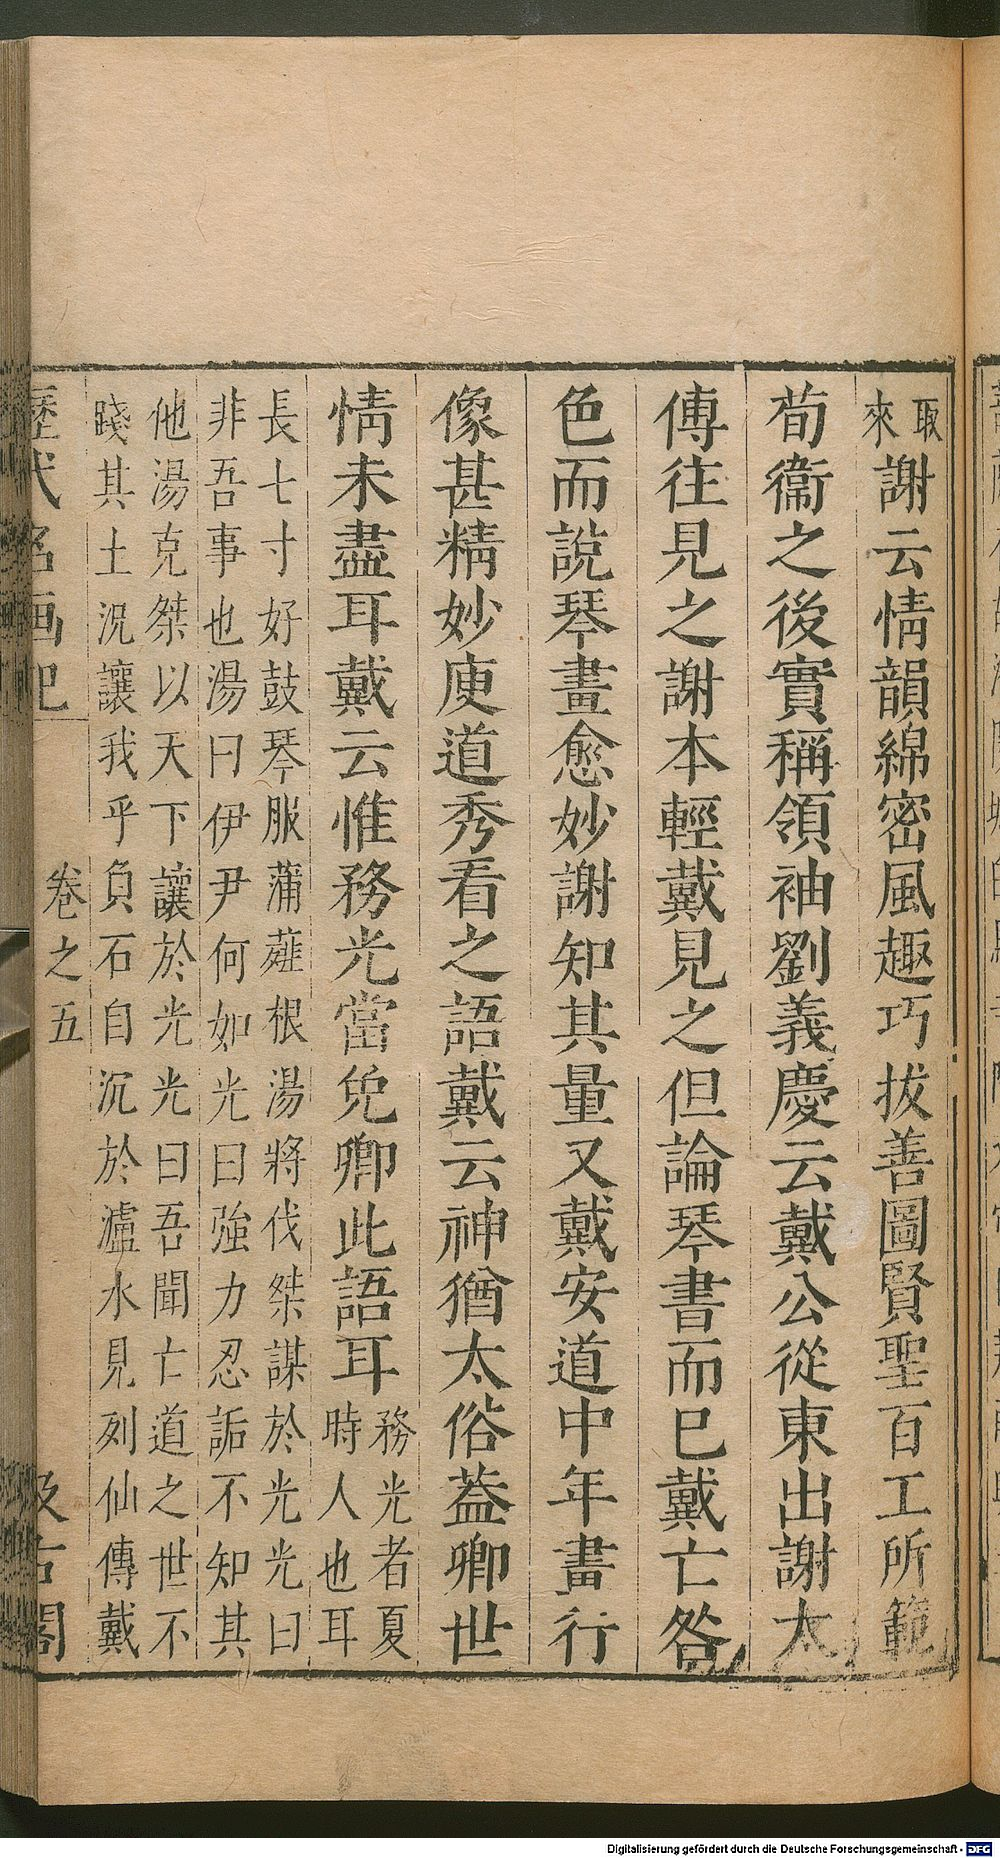 取
來
謝云情韻綿密風趣巧拔善圖賢聖百工所範
荀衞之後實稱領袖劉義慶云戴公從東出謝太
傅往見之謝本輕戴見之但論琴書而已戴亡吝
色而說琴畫愈妙謝知其量又戴安道中年畫行
像甚精妙庾道秀看之語戴云神猶太俗葢卿世
情未盡耳戴云惟務光當免卿此語耳
務光者夏
時人也耳
長七寸好鼓琴服蒲薤根湯將伐桀謀於光光曰
非吾事也湯曰伊尹何如光曰強力忍詬不知其
他湯克桀以天下讓於光光曰吾聞亡道之世不
踐其土況讓我乎負石自沉於瀘水見列仙傳戴
歷代名画記
卷之五
汲古閣
Digitalisierung gefördert durch die Deutsche Forschungsgemeinschaft - DFG